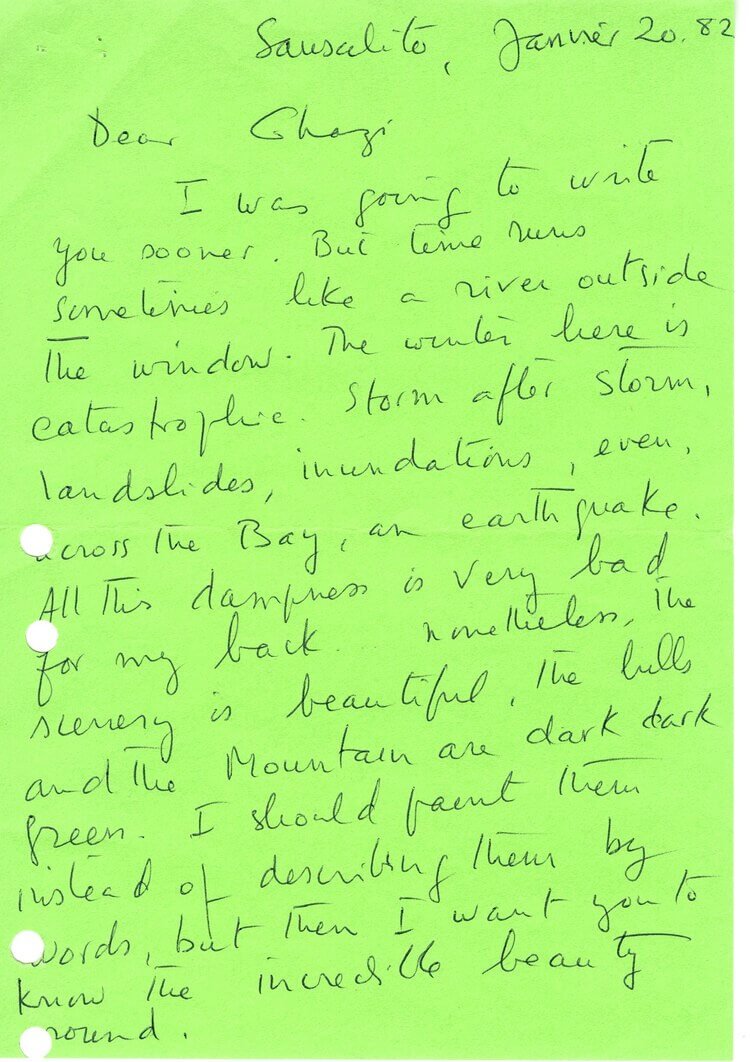 Sausalito, Janvier 20. 82
Dear Ghazi
I was going to write
you sooner. But time runs
sometimes like a river outside
the window. The winter here is
catastrophic. Storm after storm,
landslides, inundations, even,
across the Bay, an earthquake.
All this dampness is very bad
for my back. nonetheless, the
scenery is beautiful, the hills
and the Mountain are dark dark
green. I should paint them
instead of describing them by
words, but then I want you to
know the incredible beauty
around.